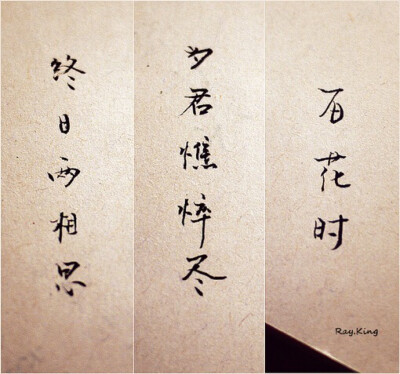 终日两相思
为君憔悴尽
百花时
Ray.King